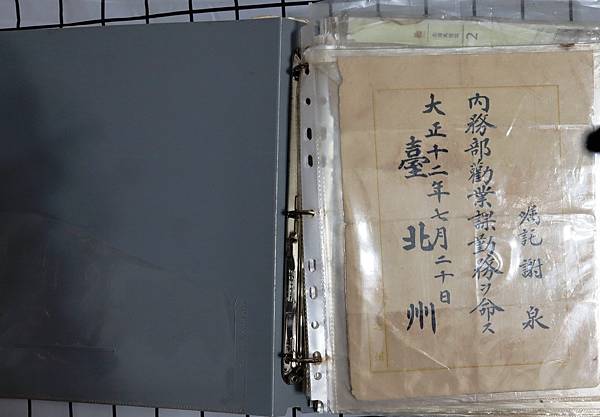 嘱託 謝 泉
內務部勸業課勤務ヲ命ス
大正十二年七月二十日
臺北州
2